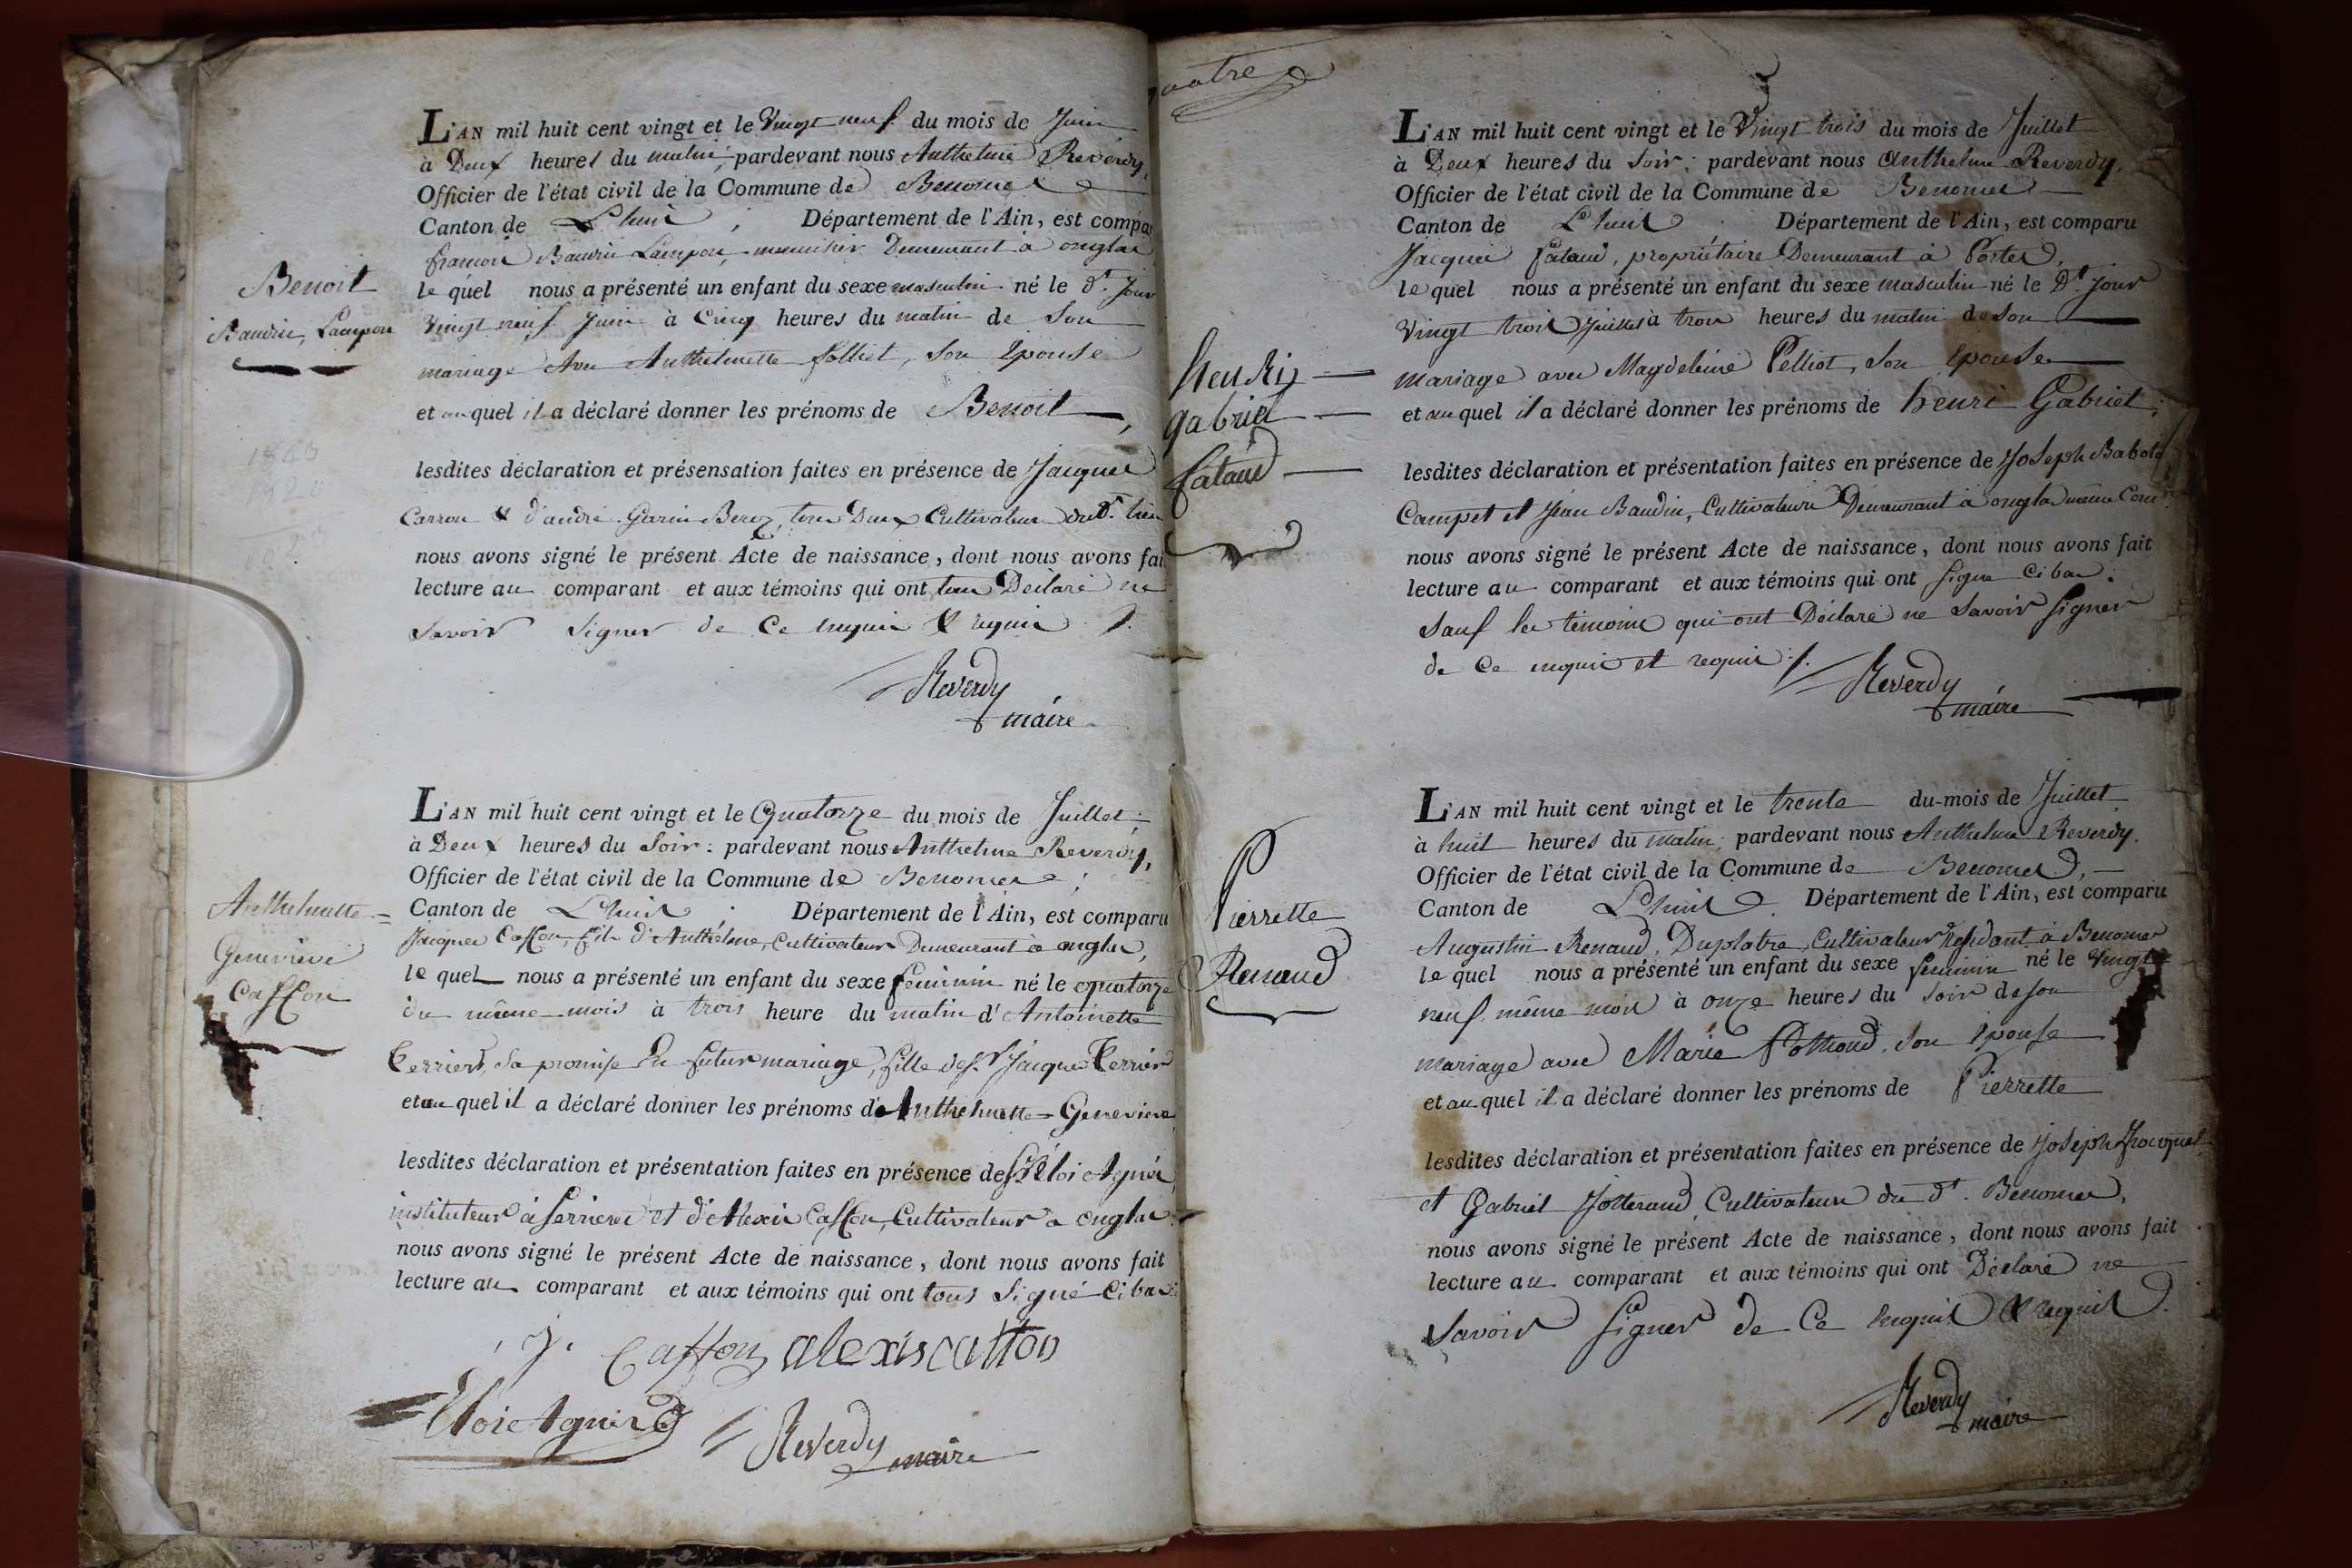 L'AN mil huit cent vingt et le Vingt neuf du mois de Juin
à Deux heures du matin, pardevant nous Anthelme Reverdy,
Officier de l'état civil de la Commune de Benonces
Canton de Lhuis, Département de l'Ain, est compar
francois Baudin Lampon, meunier Demeurant à onglas
Benoit
Baudin, Lampon
le quel nous a présenté un enfant du sexe masculin né le dt. Jour
Vingt neuf Juin à Cinq heures du matin de Son
mariage Avec Anthelmette folliet, Son Epouse
et au quel il a déclaré donner les prénoms de Benoit,
lesdites déclaration et présensation faites en présence de Jacques
Carron & d'andré Garin Berez, tous Deux Cultivateurs du dt. lieu
nous avons signé le présent Acte de naissance, dont nous avons fai
lecture au comparant et aux témoins qui ont tous Déclaré ne
Savoir Signer de Ce enquis & requis
Reverdy
maire
L'AN mil huit cent vingt et le Quatorze du mois de Juillet,
à Deux heures du Soir: pardevant nous Anthelme Reverdy,
Officier de l'état civil de la Commune de Benonces;
Canton de Lhuis; Département de l'Ain, est comparu
Jacques Casson, fils d'Anthelme, Cultivateur Demeurant à onglas,
Anthelmette =
Geneviève
Casson
le quel nous a présenté un enfant du sexe feminin né le quatorze
du même mois à trois heure du matin d'Antoinette
Terrier, Sa promise En futur mariage, fille de Sr. Jacques Terrier
et au quel il a déclaré donner les prénoms d'Anthelmette = Genevieve
lesdites déclaration et présentation faites en présence de Sr. Eloi Agnié
instituteur à Serrieres et d'Alexis Casson, Cultivateur à onglas
nous avons signé le présent Acte de naissance, dont nous avons fait
lecture au comparant et aux témoins qui ont tous Signé Ci bas
J. Casson alexis casson
Eloi Agnié
Reverdy maire
quatre
L'AN mil huit cent vingt et le Vingt trois du mois de Juillet
à Deux heures du Soir: pardevant nous Anthelme Reverdy,
Officier de l'état civil de la Commune de Benonces
Canton de Lhuis, Département de l'Ain, est comparu
Jacques fataud, propriétaire Demeurant à Portes,
le quel nous a présenté un enfant du sexe masculin né le Dt. Jour
Vingt trois Juillet à trois heures du matin de Son
henri
gabriel
fataud
mariage avec Magdeleine Pelliot, Son Epouse
et au quel il a déclaré donner les prénoms de henri Gabriel,
lesdites déclaration et présentation faites en présence de Joseph Babolat
Campet et Jean Baudin, Cultivateurs Demeurant à onglas même Com
nous avons signé le présent Acte de naissance, dont nous avons fait
lecture au comparant et aux témoins qui ont Signé Ci bas.
Sauf les témoins qui ont Déclaré ne Savoir Signer
de Ce enquis et requis
Reverdy
maire
L'AN mil huit cent vingt et le trente du mois de Juillet
à huit heures du matin, pardevant nous Anthelme Reverdy.
Officier de l'état civil de la Commune de Benonces,
Canton de Lhuis. Département de l'Ain, est comparu
Augustin Renaud, Duplatre, Cultivateur Résidant à Benonces
Pierrette
Renaud
le quel nous a présenté un enfant du sexe feminin né le Vingt
neuf même mois à onze heures du Soir de Son
mariage avec Marie Son Epouse
et au quel il a déclaré donner les prénoms de Pierrette
lesdites déclaration et présentation faites en présence de Joseph Trocquet
et Gabriel Jotteraud, Cultivateurs du dt. Benonces,
nous avons signé le présent Acte de naissance, dont nous avons fait
lecture au comparant et aux témoins qui ont Déclaré ne
Savoir Signer de Ce Enquis & requis
Reverdy
maire